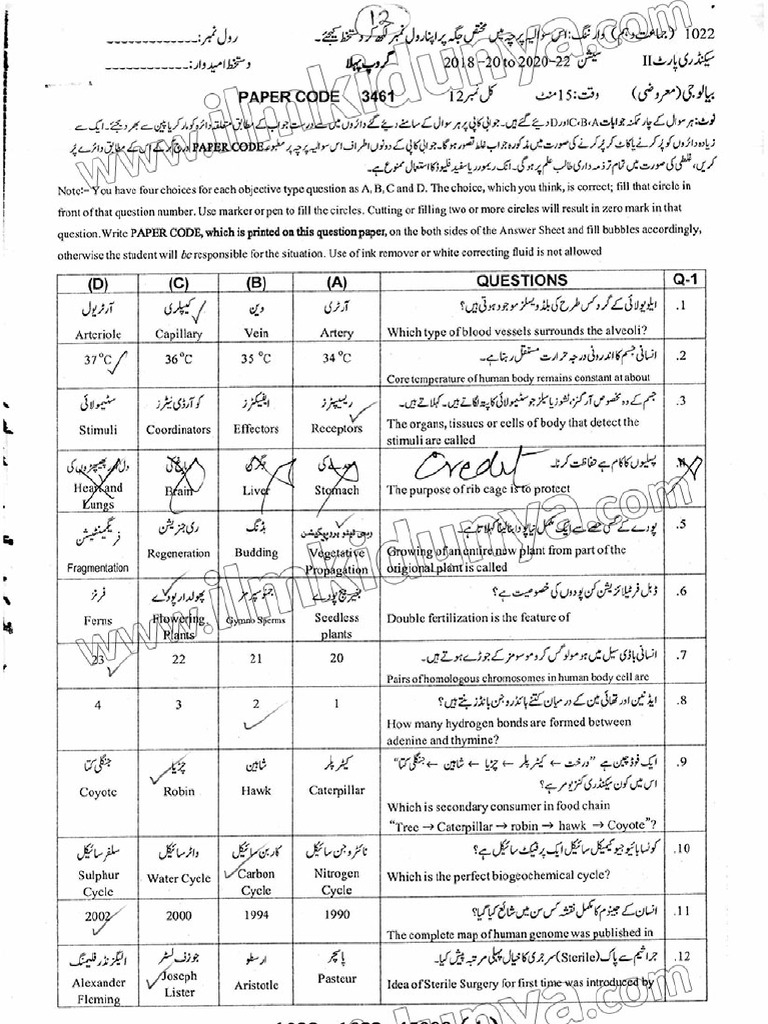 12
1022 (جماعت دہم) وارننگ: اس سوالیہ پرچہ میں مختص جگہ پر اپنا رول نمبر لکھ کر دستخط کیجئے۔ رول نمبر:
سیکنڈری پارٹ II سیشن 2018-20 to 2020-22 گروپ پہلا دستخط امیدوار:
بیالوجی (معروضی) وقت: 15 منٹ کل نمبر 12 PAPER CODE 3461
نوٹ: ہر سوال کے چار ممکنہ جوابات C، B، A اور D دیئے گئے ہیں۔ جوابی کاپی پر ہر سوال کے سامنے دیئے گئے دائروں میں سے درست جواب کے مطابق متعلقہ دائرہ کو مارکر یا پین سے بھر دیجئے۔ ایک سے
زیادہ دائروں کو پر کرنے یا کاٹ کر پر کرنے کی صورت میں مذکورہ جواب غلط تصور ہو گا۔ جوابی کاپی کے دونوں اطراف اس سوالیہ پرچہ پر مطبوعہ PAPER CODE درج کر کے اس کے مطابق دائرے پر
کریں، غلطی کی صورت میں تمام تر ذمہ داری طالب علم پر ہوگی۔ انک ریموور یا سفید فلیوڈ کا استعمال ممنوع ہے۔
Note:- You have four choices for each objective type question as A, B, C and D. The choice, which you think, is correct; fill that circle in
front of that question number. Use marker or pen to fill the circles. Cutting or filling two or more circles will result in zero mark in that
question. Write PAPER CODE, which is printed on this question paper, on the both sides of the Answer Sheet and fill bubbles accordingly,
otherwise the student will be responsible for the situation. Use of ink remover or white correcting fluid is not allowed
(D) (C) (B) (A) QUESTIONS Q-1
آرٹریول کیپلری وین آرٹری ایلویولائی کے گرد کس طرح کی بلڈ ویسلز موجود ہوتی ہیں؟ .1
Arteriole Capillary Vein Artery Which type of blood vessels surrounds the alveoli?
37°C 36°C 35°C 34°C انسانی جسم کا اندرونی درجہ حرارت مستقل رہتا ہے۔ .2
Core temperature of human body remains constant at about
سٹیمولائی کوآرڈی نیٹرز ایفیکٹرز ریسیپٹرز جسم کے وہ مخصوص آرگنز، ٹشوز یا سیلز جو سٹیمولائی کا پتہ لگاتے ہیں۔ کہلاتے ہیں۔ .3
Stimuli Coordinators Effectors Receptors The organs, tissues or cells of body that detect the
stimuli are called
دل اور پھیپھڑوں کی دماغ کی جگر کی معدے کی پسلیوں کا کام ہے حفاظت کرنا۔ Credit
Heart and Brain Liver Stomach The purpose of rib cage is to protect
Lungs
فریگمنٹیشن ری جنریشن بڈنگ ویجی ٹیٹو پروپیگیشن پودے کے کسی حصے سے ایک مکمل نیا پودا بنا لینا کہلاتا ہے۔ .5
Fragmentation Regeneration Budding Vegetative Propagation Growing of an entire new plant from part of the
origional plant is called
فرنز پھولدار پودے جمنو سپرمز بغیر بیج پودے ڈبل فرٹیلائزیشن کن پودوں کی خصوصیت ہے؟ .6
Ferns Flowering Plants Gymno Sperms Seedless plants Double fertilization is the feature of
23 22 21 20 انسانی باڈی سیل میں ہومولوگس کروموسومز کے جوڑے ہوتے ہیں۔ .7
Pairs of homologous chromosomes in human body cell are
4 3 2 1 ایڈنین اور تھائی مین کے درمیان کتنے ہائڈروجن بانڈز بنتے ہیں؟ .8
How many hydrogen bonds are formed between
adenine and thymine?
جنگلی کتا چڑیا شاہین کیٹر پلر ایک فوڈ چین ہے "درخت ← کیٹر پلر ← چڑیا ← شاہین ← جنگلی کتا" .9
Coyote Robin Hawk Caterpillar اس میں کون سیکنڈری کنزیومر ہے؟
Which is secondary consumer in food chain
"Tree → Caterpillar → robin → hawk → Coyote"?
سلفر سائیکل واٹر سائیکل کاربن سائیکل نائٹروجن سائیکل کونسا بائیوجیوکیمیکل سائیکل ایک پرفیکٹ سائیکل ہے؟ .10
Sulphur Cycle Water Cycle Carbon Cycle Nitrogen Cycle Which is the perfect biogeochemical cycle?
2002 2000 1994 1990 انسان کے جینوم کا مکمل نقشہ کس سن میں شائع کیا گیا؟ .11
The complete map of human genome was published in
الیگزنڈر فلیمنگ جوزف لسٹر ارسطو پاسچر جراثیم سے پاک (Sterile) سرجری کا خیال پہلی مرتبہ پیش کیا۔ .12
Alexander Fleming Joseph Lister Aristotle Pasteur Idea of Sterile Surgery for first time was introduced by
www.ilmkidunya.com